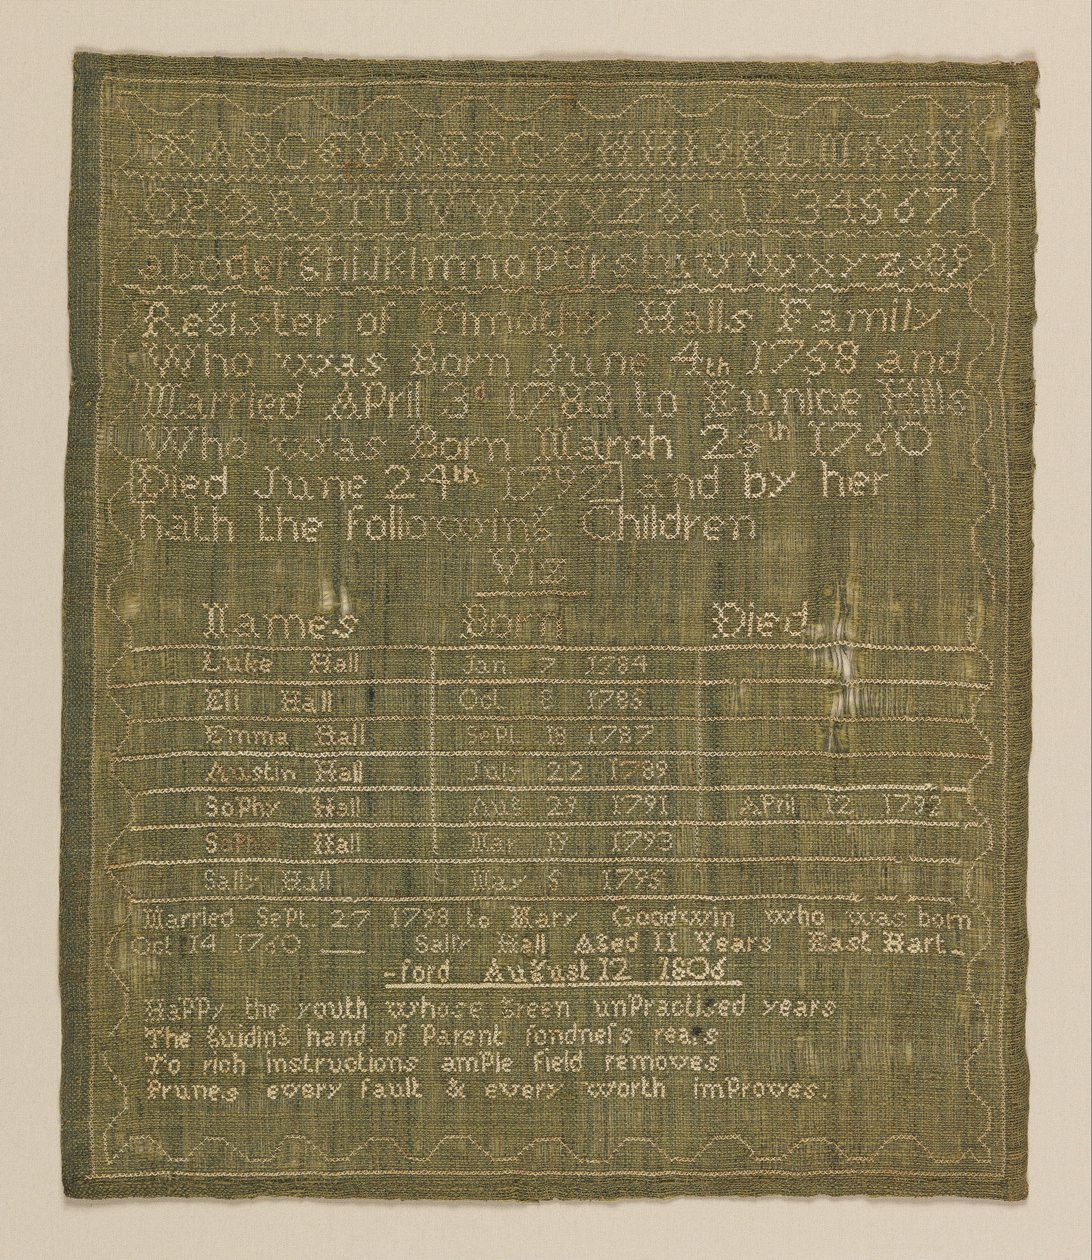 A B C & D E F G H I J K L M N
O P Q R S T U V W X Y Z & 1 2 3 4 5 6 7
a b c d e f g h i j k l m n o p q r s t u v w x y z & 8 9
Register of Timothy Halls Family
Who was Born June 4th 1758 and
Married April 3d 1783 to Eunice Hills
Who was Born March 25th 1760
[Died June 24th 1797] and by her
hath the following Children
Viz
Names Born Died
Luke Hall Jan 7 1784
Eli Hall Oct 8 1785
Emma Hall Sept 18 1787
Austin Hall July 22 1789
Sophy Hall Aug 29 1791 April 12 1792
Hall Mar 19 1793
Sally Hall May 5 1795
Married Sept. 27 1798 to Mary Goodwin who was born
Oct 14 1760 — Sally Hall Aged 11 Years East Hart-
-ford August 12 1806
Happy the youth whose green unPractised years
The guiding hand of Parent fondneſs rears
To rich instructions amPle field removes
Prunes every fault & every worth imProves.